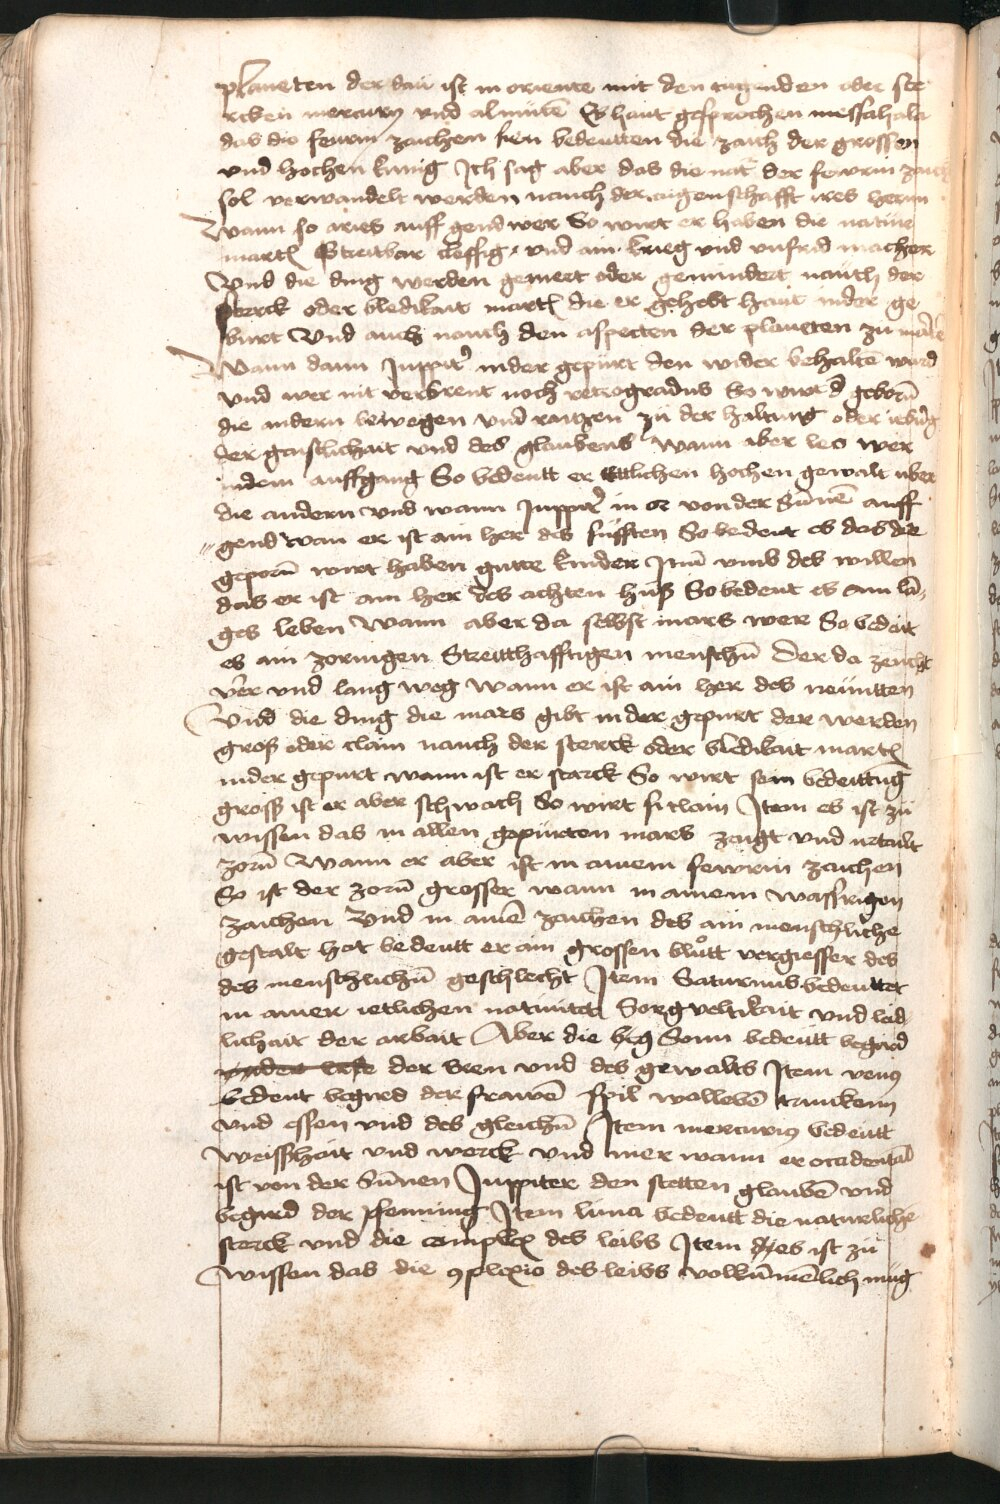 planeten der dan ist in oriente mit den tugenden oder ster
cken mercurÿ und almuten Es haut gesprochen messahala
das die feurin zaichen sien bedeutten die zaich der grossen
und hochen kunig Ich sag aber das die nat der fewrin zaich
sol verwandelt werden nauch der aigenschafft ires herrn
Wann so aries auff gend wer So wirt er haben die nature
martis Streitbar cleffig und ain krieg und unfrid macher
Und die ding werden gemert oder gemindert nauch der
sterck oder bledikait martis die er gehebt haut inder ge
burt Und auch nauch den aspecten der planeten zu
Wann dann Juppiter inder gepurt den wider behalten wurd
und wer nit verbrent noch retrogradus So wurd d geborn
die andern bewegen und raitzen zu der haltung oder
der gaistlichait und des glaubens wann aber leo wer
indem auffgang So bedeutt er ettlichen hochen gewalt uber
die andern und wann Juppiter in or von der Sunnen auff
gend wan er ist ain her des funfften So bedeut es das der
geporn wirt haben gutte kinder Jnn umb des willen
das er ist ain her des achten huß So bedeut es ain lan
ges leben Wann aber da selbst mars wer So bedeut
es ain zornigen Streitthafftigen menschen Der da zeucht
ver und lang weg wann er ist ain her des neuntten
Und die ding die mars gibt inder gepurt der werden
groß oder clain nauch der sterck oder bledikait martis
inder gepurt wann ist er starck So wirt sein bedeittung
groß ist er aber schwach So wirt si clain Item es ist zu
wissen das in allen gepurten mars zeugt und urtailt
zorn Wann er aber ist in ainem fewrin zaichen
So ist der zorn grosser wann in ainem wassrigen
zaichen Und in ainem zaichen des ain menschliche
gestalt hat bedeutt er ain grossen blutt vergiesser des
des menschlichen geschlecht Item Saturnus bedeuttet
in ainer ietlichen natiuitet Sorgveltikait und laid
lichait der arbait Aber die Sonn bedeutt begird
der eren und des gewalts Item venus
bedeut begird der frawen spil wolleben trinckenn
und essen und des gleichen Item mercurius bedeutt
weisshait und werck und mer wann er occidentalis
ist von der Sunnen Juppiter den stetten glauben und
begird der pfenning Item luna bedeutt die naturliche
sterck und die complex des leibs Item es ist zu
wissen das die complexio des leibs volkumenlich mug